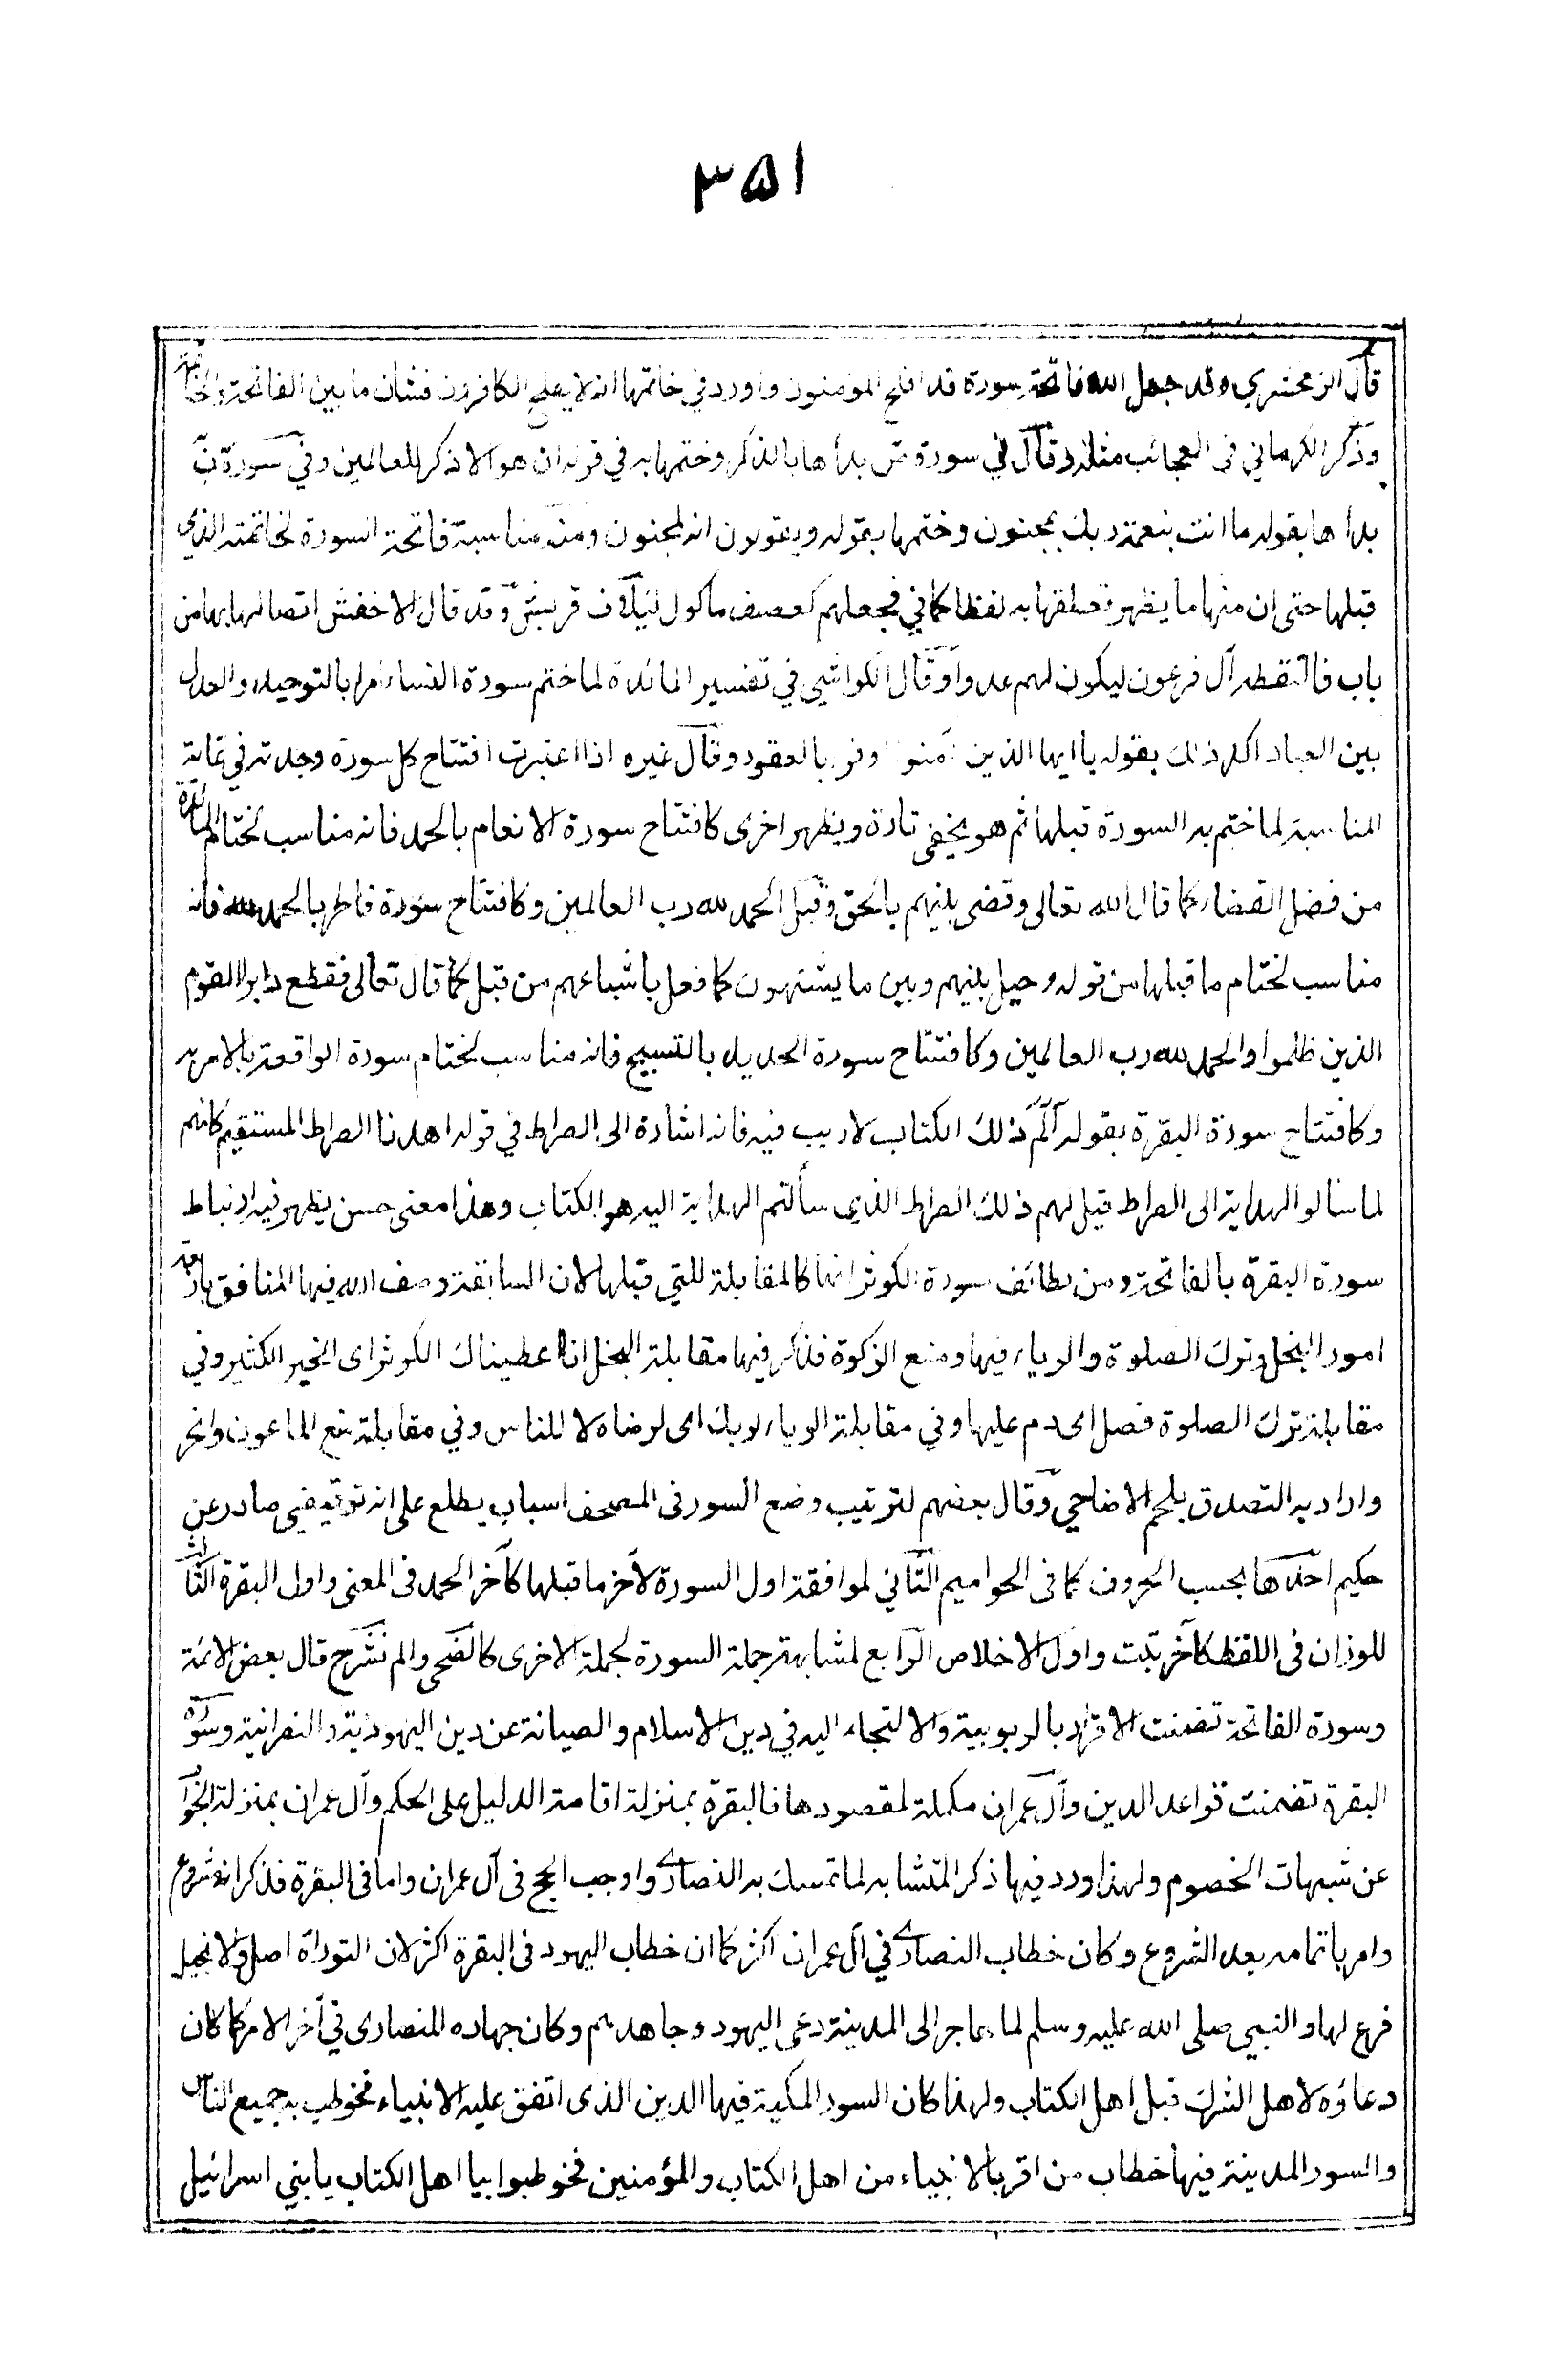 ٣٥١
قال الزمخشري وقد جعل الله فاتحة سورة قد افلح المؤمنون واورد في خاتمتها انه لا يفلح الكافرون فشتان ما بين الفاتحة والخاتمة
وذكر الكرماني في العجائب مثله وقال في سورة ص بدأها بالذكر وختمها به في قوله ان هو الا ذكر للعالمين وفي سورة ن
بدأها بقوله ما انت بنعمة ربك بمجنون وختمها بقوله ويقولون انه لمجنون ومنه مناسبة فاتحة السورة لخاتمة الذي
قبلها حتى ان منها ما يظهر تعلقها به لفظا كما في فجعلهم كعصف ماكول لئيلاف قريش وقد قال الاخفش اتصالها بها من
باب فالتقطه آل فرعون ليكون لهم عدوا وقال الكواشي في تفسير المائدة لما ختم سورة النساء امرا بالتوحيد والعدل
بين العباد اكد ذلك بقوله يا ايها الذين آمنوا اوفوا بالعقود وقال غيره اذا اعتبرت افتتاح كل سورة وجدته في غاية
المناسبة لما ختم به السورة قبلها ثم هو يخفى تارة ويظهر اخرى كافتتاح سورة الانعام بالحمد فانه مناسب لختام المائدة
من فضل القضاء كما قال الله تعالى وقضى بينهم بالحق وقيل الحمد لله رب العالمين وكافتتاح سورة فاطر بالحمد لله فانه
مناسب لختام ما قبلها من قوله وحيل بينهم وبين ما يشتهون كما فعل باشياعهم من قبل كما قال تعالى فقطع دابر القوم
الذين ظلموا والحمد لله رب العالمين وكافتتاح سورة الحديد بالتسبيح فانه مناسب لختام سورة الواقعة بالامر به
وكافتتاح سورة البقرة بقوله آلم ذلك الكتاب لا ريب فيه فانه اشارة الى الصراط في قوله اهدنا الصراط المستقيم كانهم
لما سالوا الهداية الى الصراط قيل لهم ذلك الصراط الذي سألتم الهداية اليه هو الكتاب وهذا معنى حسن يظهر فيه ارتباط
سورة البقرة بالفاتحة ومن لطائف سورة الكوثر انها كالمقابلة للتي قبلها لان السابقة وصف الله فيها المنافق باربعة
امور البخل وترك الصلوة والرياء فيها ومنع الزكوة فذكر فيها مقابلة البخل انا اعطيناك الكوثر اى الخير الكثير وفي
مقابلة ترك الصلوة فصل اى دم عليها وفي مقابلة الرياء لربك اى لرضاه لا للناس وفي مقابلة منع الماعون وانحر
واراد به التصدق بلحم الاضاحي وقال بعضهم لترتيب وضع السور فى المصحف اسباب يطلع على انه توقيفي صادر عن
حكيم احدها بحسب الحروف كما فى الحواميم الثاني لموافقة اول السورة لآخر ما قبلها كآخر الحمد فى المعنى واول البقرة الثالث
للوزان فى اللفظ كآخر تبت واول الاخلاص الرابع لمشابهة جملة السورة لجملة الاخرى كالضحى والم نشرح قال بعض الائمة
وسورة الفاتحة تضمنت الاقرار بالربوبية والالتجاء اليه في دين الاسلام والصيانة عن دين اليهودية والنصرانية وسورة
البقرة تضمنت قواعد الدين وآل عمران مكملة لمقصودها فالبقرة بمنزلة اقامة الدليل على الحكم وآل عمران بمنزلة الجواب
عن شبهات الخصوم ولهذا ورد فيها ذكر المتشابه لما تمسك به النصارى واوجب الحج فى آل عمران واما فى البقرة فذكر انه مشروع
وامر باتمامه بعد الشروع وكان خطاب النصارى في آل عمران اكثر كما ان خطاب اليهود فى البقرة اكثر لان التوراة اصل والانجيل
فرع لها والنبي صلى الله عليه وسلم لما هاجر الى المدينة دعى اليهود وجاهدهم وكان جهاده للنصارى في آخر الامر كما كان
دعاؤه لاهل الشرك قبل اهل الكتاب ولهذا كان السور المكية فيها الدين الذى اتفق عليه الانبياء فخوطب به جميع الناس
والسور المدينة فيها خطاب من اقر بالانبياء من اهل الكتاب والمؤمنين فخوطبوا بيا اهل الكتاب يا بني اسرائيل